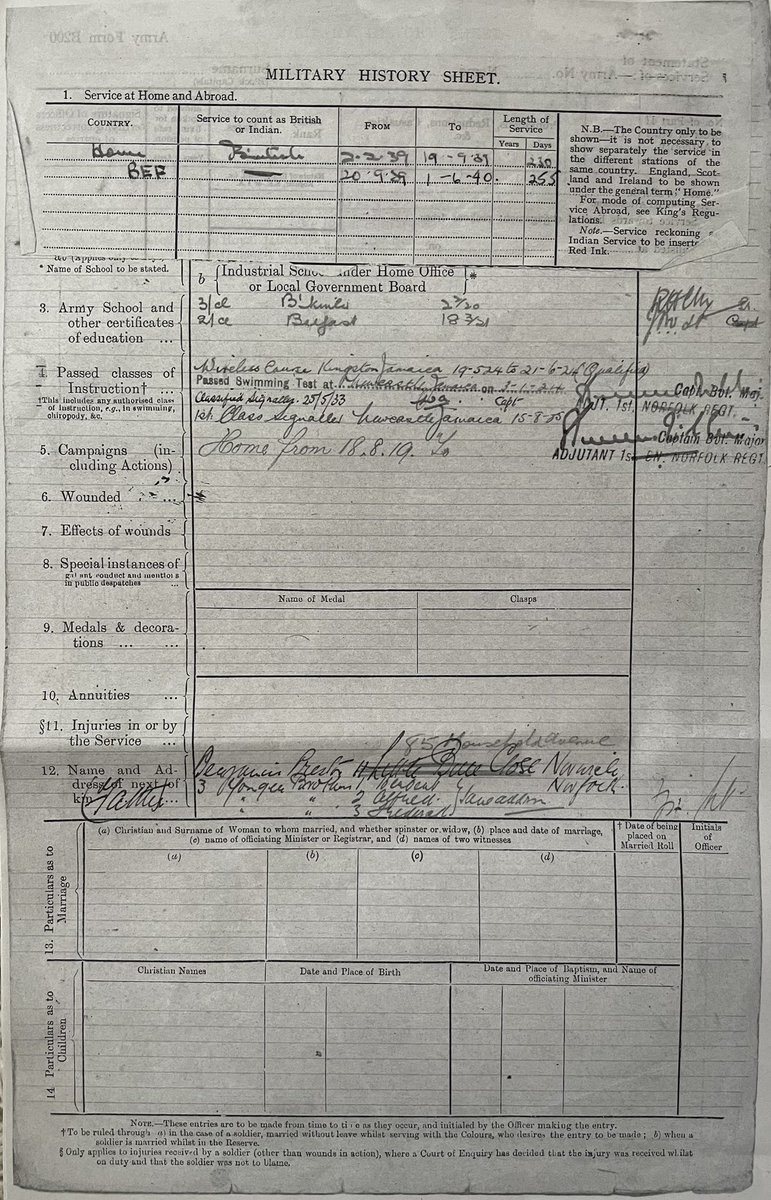 Army Form B200
MILITARY HISTORY SHEET.
1. Service at Home and Abroad.
COUNTRY.
Service to count as British or Indian.
FROM
TO
Length of Service
Years
Days
N.B.—The Country only to be
shown—it is not necessary to
show separately the service in
the different stations of the
same country. England, Scot-
land and Ireland to be shown
under the general term "Home."
For mode of computing Ser-
vice Abroad, see King's Regu-
lations.
Note.—Service reckoning
Indian Service to be inserte
Red Ink.
Home British 2-2-39 19-9-39 230
BEF 20-9-39 1-6-40. 255
* Name of School to be stated.
b Industrial Scho under Home Office
or Local Government Board *
3. Army School and
other certificates
of education ...
3/cl
2/cl Belfast
4. Passed classes of
Instruction† ...
†This includes any authorised class
of instruction, e.g., in swimming,
chiropody, &c.
Wireless Course Kingston Jamaica 19-5-24 to 21-6-24 (Qualified)
Passed Swimming Test at Newcastle Jamaica on
Classified Signaller. 25/5/33 Capt
1st Class Signaller Newcastle Jamaica 15-8-25
Capt. Bvt. Maj.
ADJT. 1st. NORFOLK REGT.
Captain Bvt. Major
ADJUTANT 1st BN. NORFOLK REGT
5. Campaigns (in-
cluding Actions)
Home from 18.8.19. To
6. Wounded
7. Effects of wounds
8. Special instances of
gallant conduct and mentions
in public despatches ...
Name of Medal
Clasps
9. Medals & decora-
tions ... ...
10. Annuities ...
§11. Injuries in or by
the Service ...
85 Household Avenue
12. Name and Ad-
dress of next of
kin
Father
Benjamin Norwich
3 Younger Brothers Norfolk.
" " 2 Alfred Same address
" " 3 Frederick
(a) Christian and Surname of Woman to whom married, and whether spinster or widow, (b) place and date of marriage,
(c) name of officiating Minister or Registrar, and (d) names of two witnesses
† Date of being placed on Married Roll
Initials of Officer
(a) (b) (c) (d)
13. Particulars as to Marriage
Christian Names
Date and Place of Birth
Date and Place of Baptism, and Name of officiating Minister
14 Particulars as to Children
NOTE.—These entries are to be made from time to time as they occur, and initialed by the Officer making the entry.
†To be ruled through (a) in the case of a soldier, married without leave whilst serving with the Colours, who desires the entry to be made; (b) when a
soldier is married whilst in the Reserve.
§ Only applies to injuries received by a soldier (other than wounds in action), where a Court of Enquiry has decided that the injury was received whilst
on duty and that the soldier was not to blame.